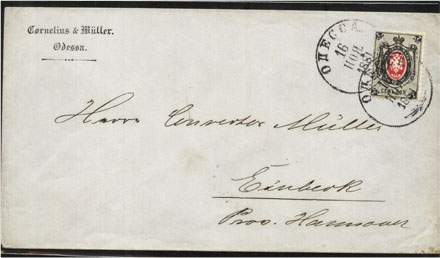 Cornelius & Müller.
Odessa.
ОДЕССА
16
НОЯ
1881
Herrn Müller
Einbeck
Prov. Hannover